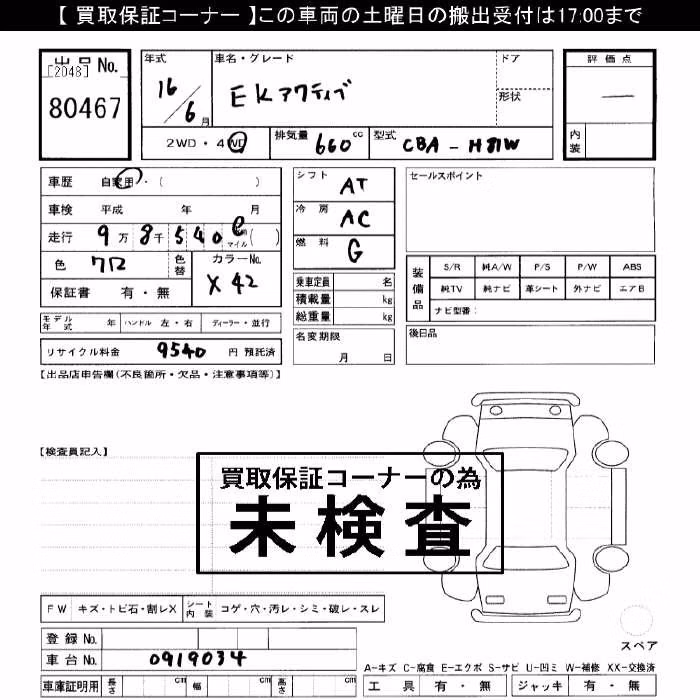 【 買取保証コーナー 】この車両の土曜日の搬出受付は17:00まで
出品 No.
[2048]
80467
年式
16/6月
車名・グレード
EKアクティブ
ドア
形状
評価点
—
内装
2WD・4WD
排気量 660 cc
型式 CBA - H81W
車歴 自家用・( )
車検 平成 年 月
走行 9万8千540 マイル( )
色 クロ
色替
カラーNo.
X42
保証書 有・無
シフト AT
冷房 AC
燃料 G
乗車定員 名
積載量 kg
総重量 kg
名変期限
月 日
セールスポイント
装備品
S/R 純A/W P/S P/W ABS
純TV 純ナビ 革シート 外ナビ エアB
ナビ型番:
後日品
モデル年式 年 ハンドル 左・右 ディーラー・並行
リサイクル料金 9540 円 預託済
【出品店申告欄(不良箇所・欠品・注意事項等)】
【検査員記入】
買取保証コーナーの為
未検査
FW キズ・トビ石・割レX
シート内装 コゲ・穴・汚レ・シミ・破レ・スレ
登録 No.
車台 No. 0919034
車庫証明用 長さ cm 幅 cm 高さ cm
スペア
A-キズ C-腐食 E-エクボ S-サビ U-凹ミ W-補修 XX-交換済
工具 有・無 ジャッキ 有・無